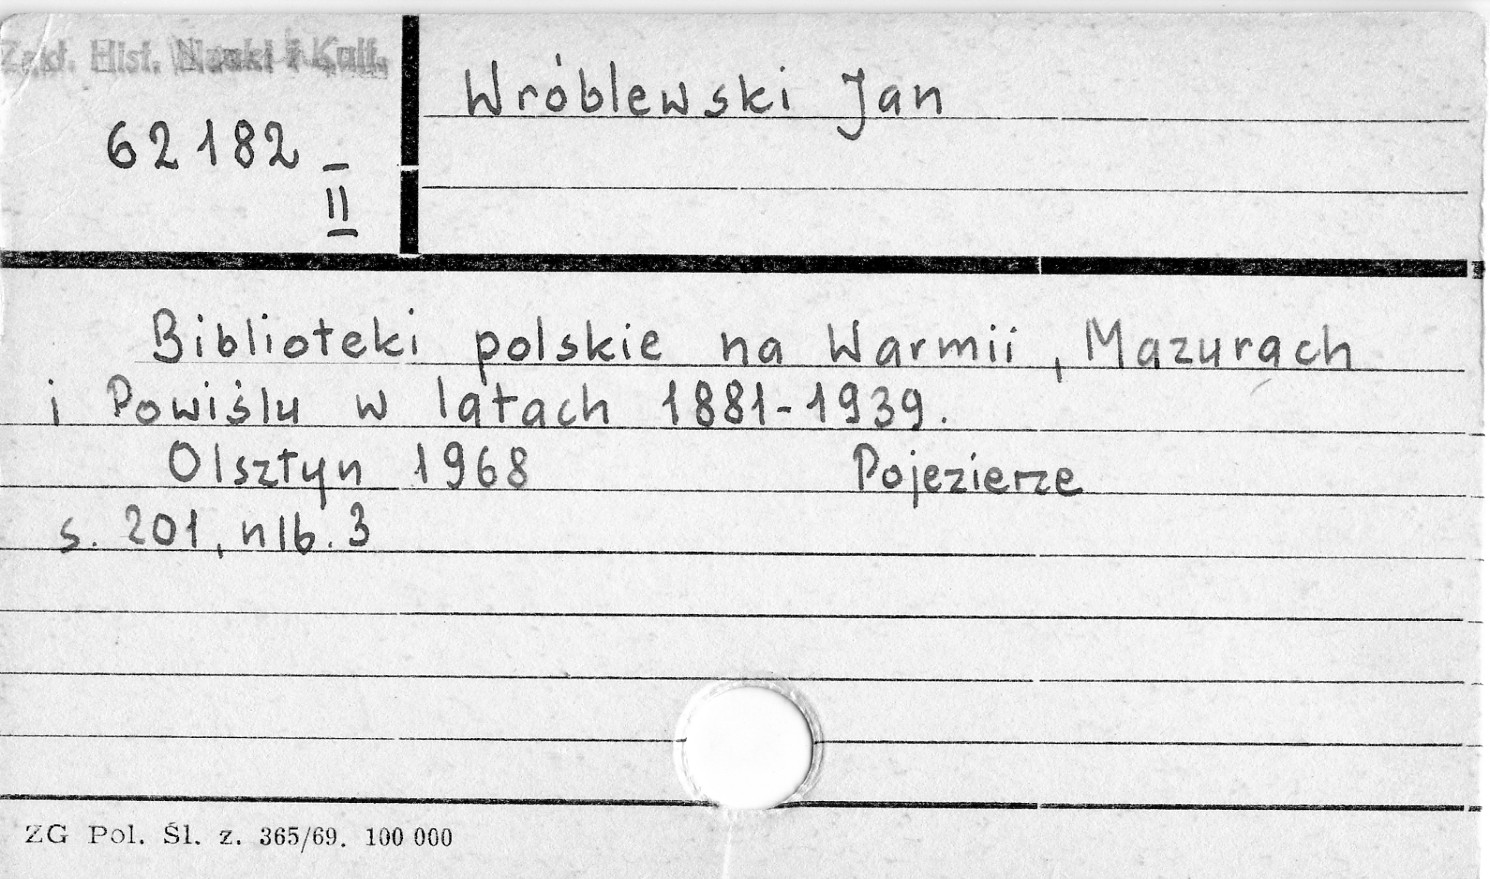 Zakł. Hist. Nauki i Kult.
62182
II
Wróblewski Jan
Biblioteki polskie na Warmii, Mazurach
i Powiślu w latach 1881-1939.
Olsztyn 1968 Pojezierze
s. 201, nlb. 3
ZG Pol. Śl. z. 365/69. 100 000